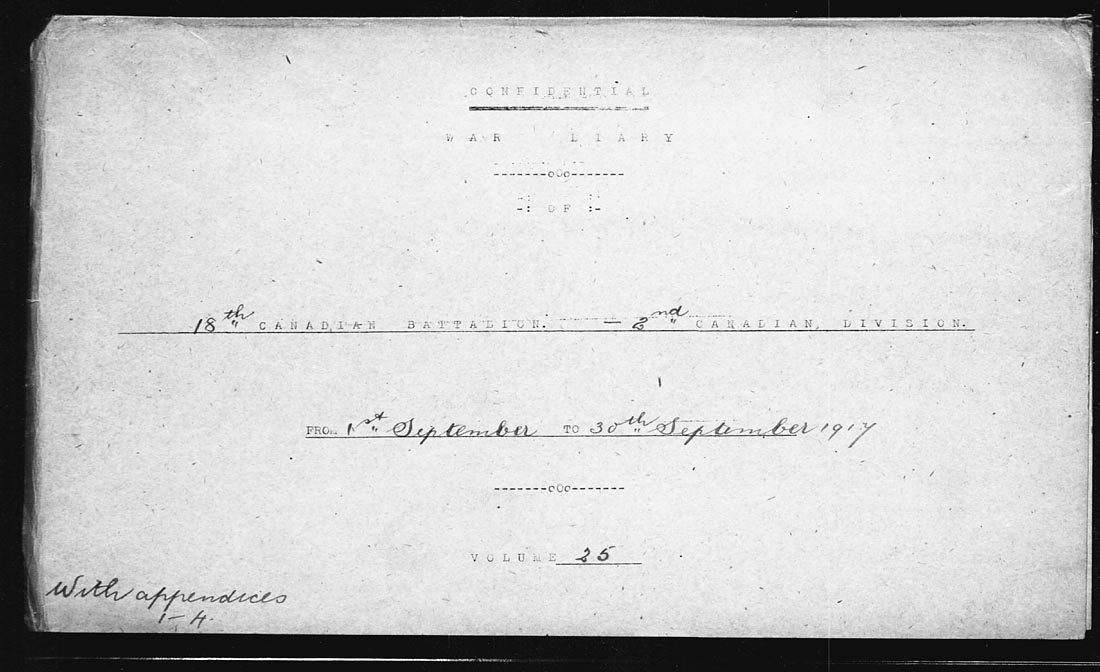 CONFIDENTIAL
WAR DIARY
-------oOo-------
-: OF :-
18th CANADIAN BATTALION. — 2nd CANADIAN DIVISION.
FROM 1st September TO 30th September 1917
-------oOo-------
VOLUME 25
With appendices
1-4.